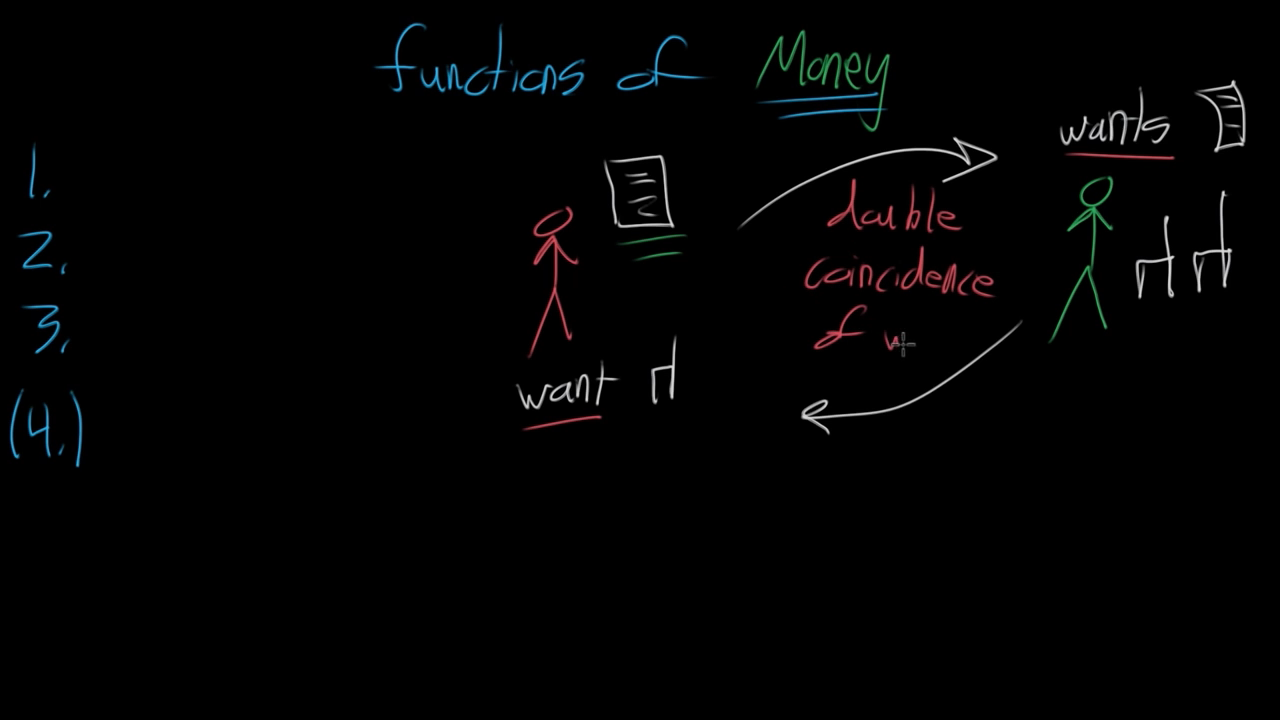 functions of Money
wants
1.
double
2.
coincidence
of w
3.
want
(4.)